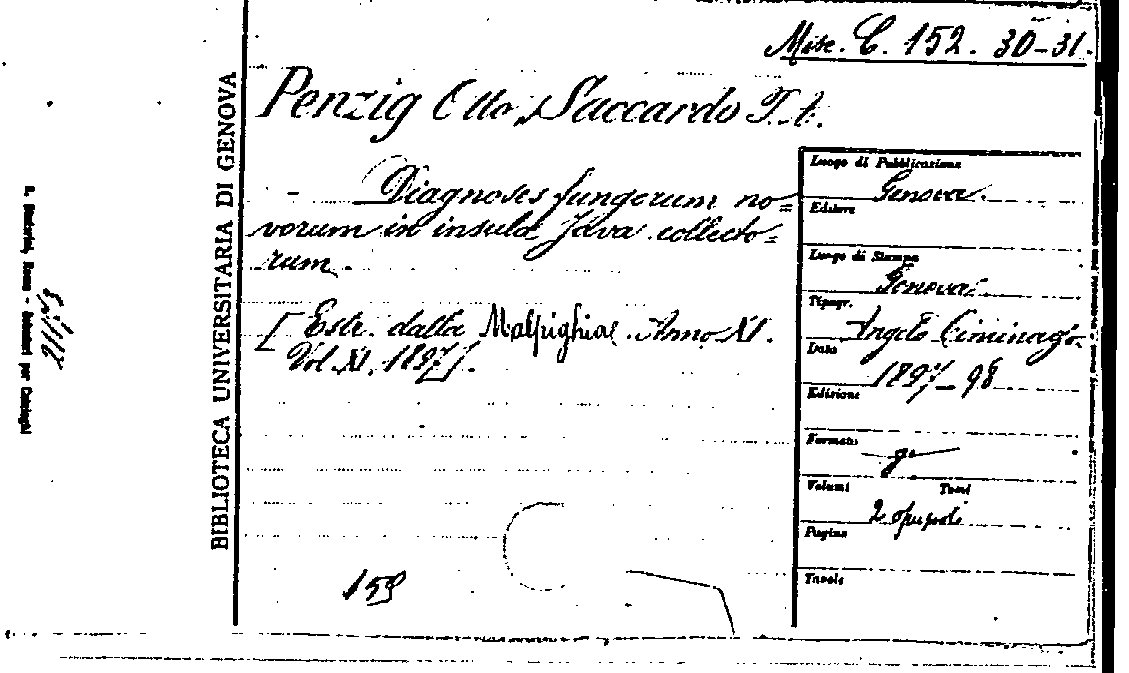 Misc. C. 152. 30-31.
Penzig Otto, Saccardo P. A.
- Diagnoses fungorum no=
vorum in insula Java collecto=
rum.
[Estr. dalla Malpighia. Anno XI.
Vol. XI. 1897].
159
BIBLIOTECA UNIVERSITARIA DI GENOVA
Luogo di Pubblicazione
Genova.
Editore
Luogo di Stampa
Genova.
Tipogr.
Angelo Ciminago.
Data
1897-98
Edizione
Formato
8°
Volumi Tomi
2 opuscoli
Pagine
Tavole
Roma - per Cataloghi